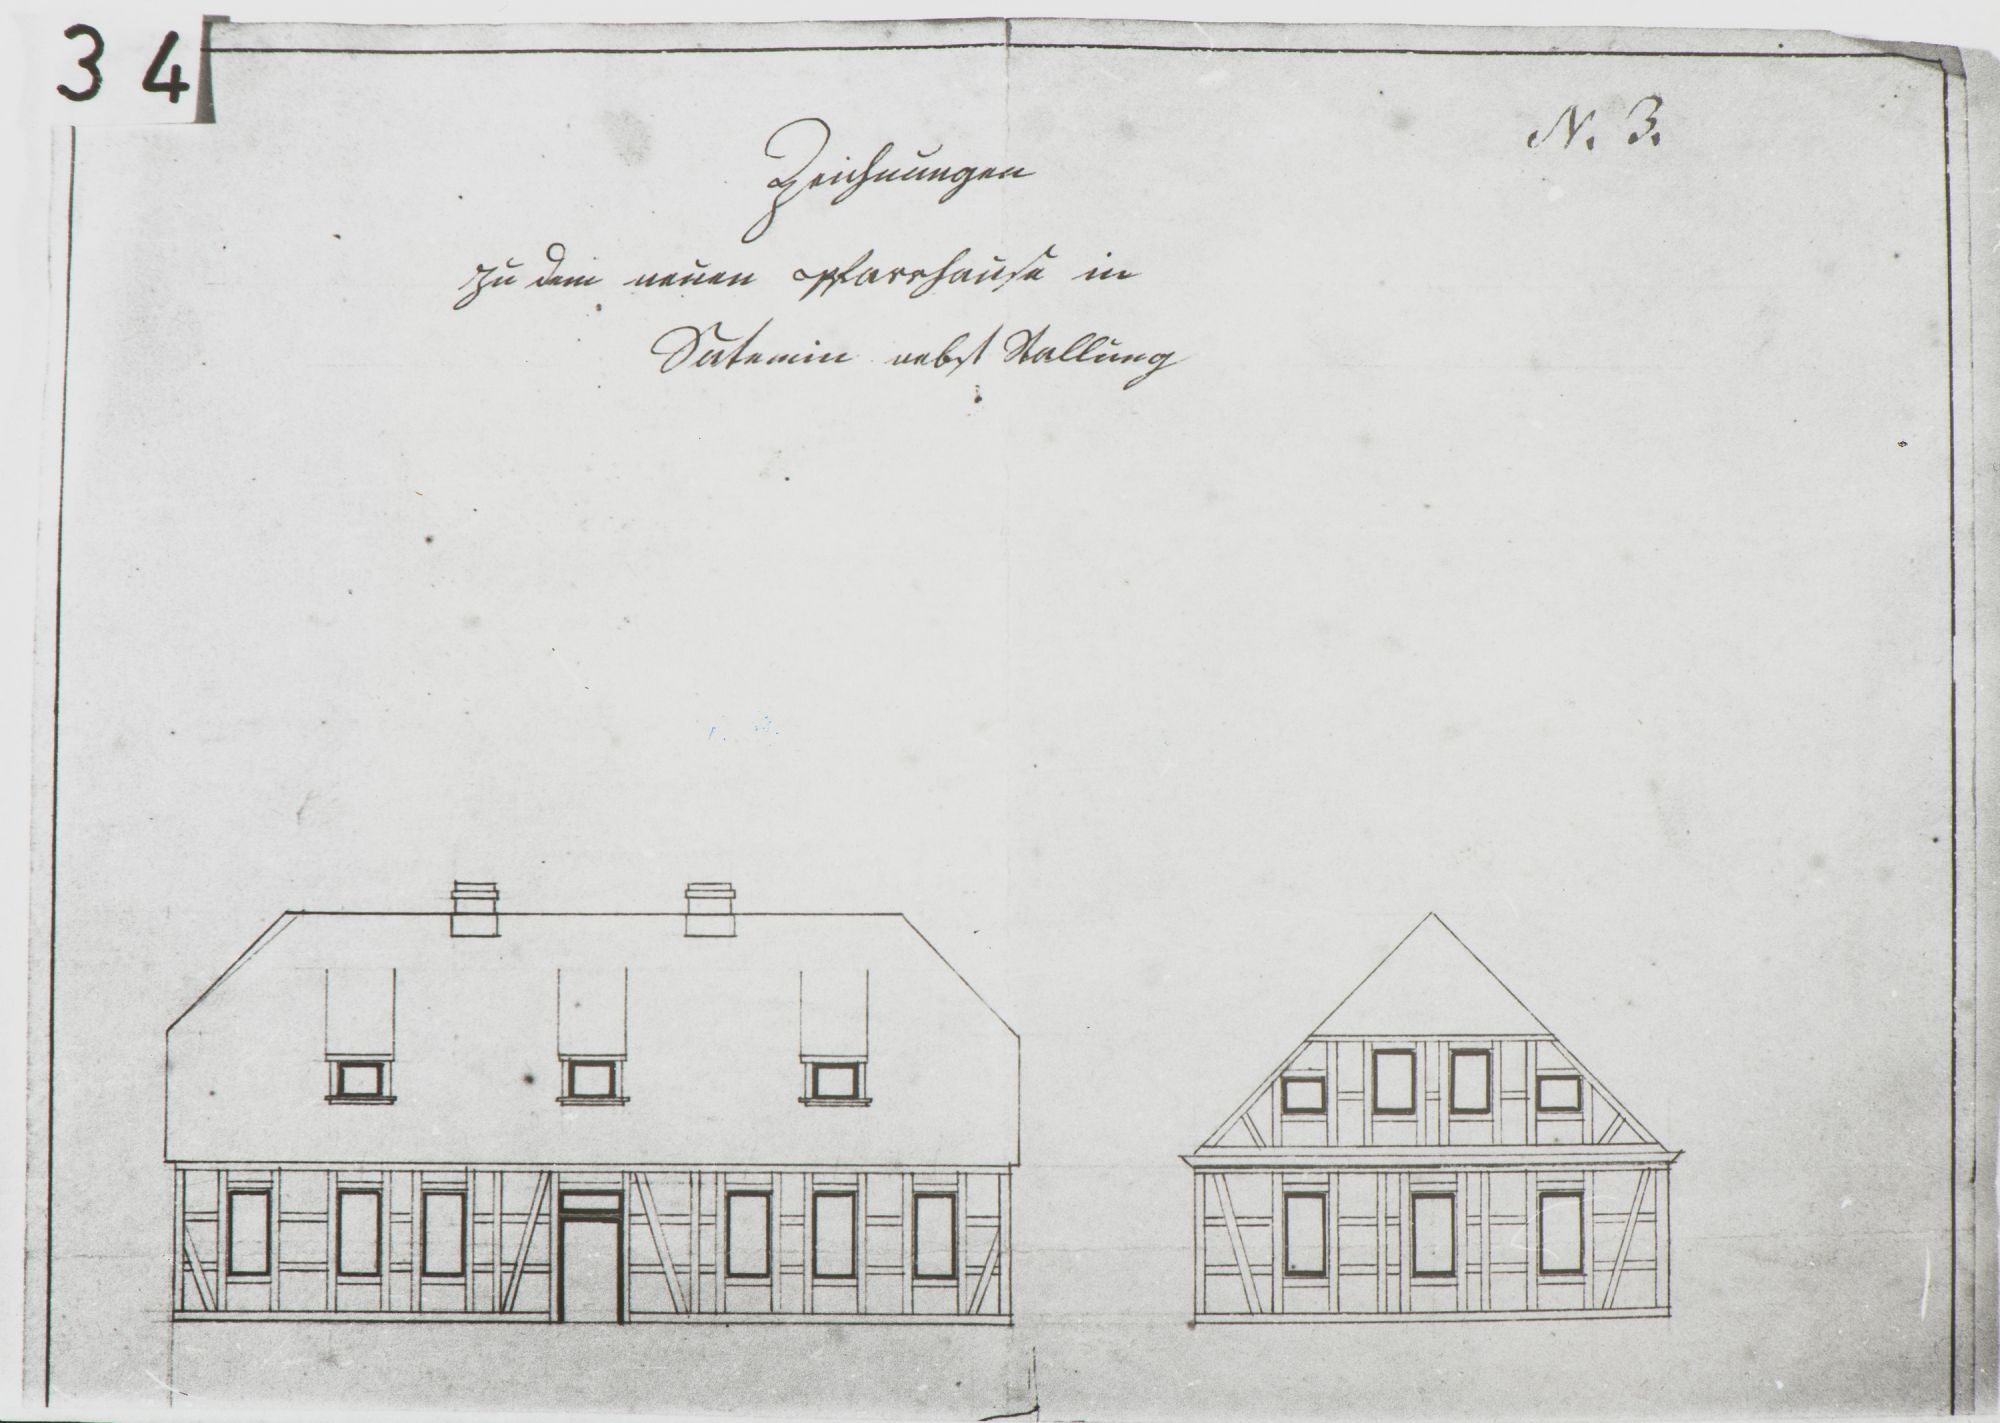 34
N. 3.
Zeichnungen
zu dem neuen Pfarrhause in
Satemin nebst Stallung